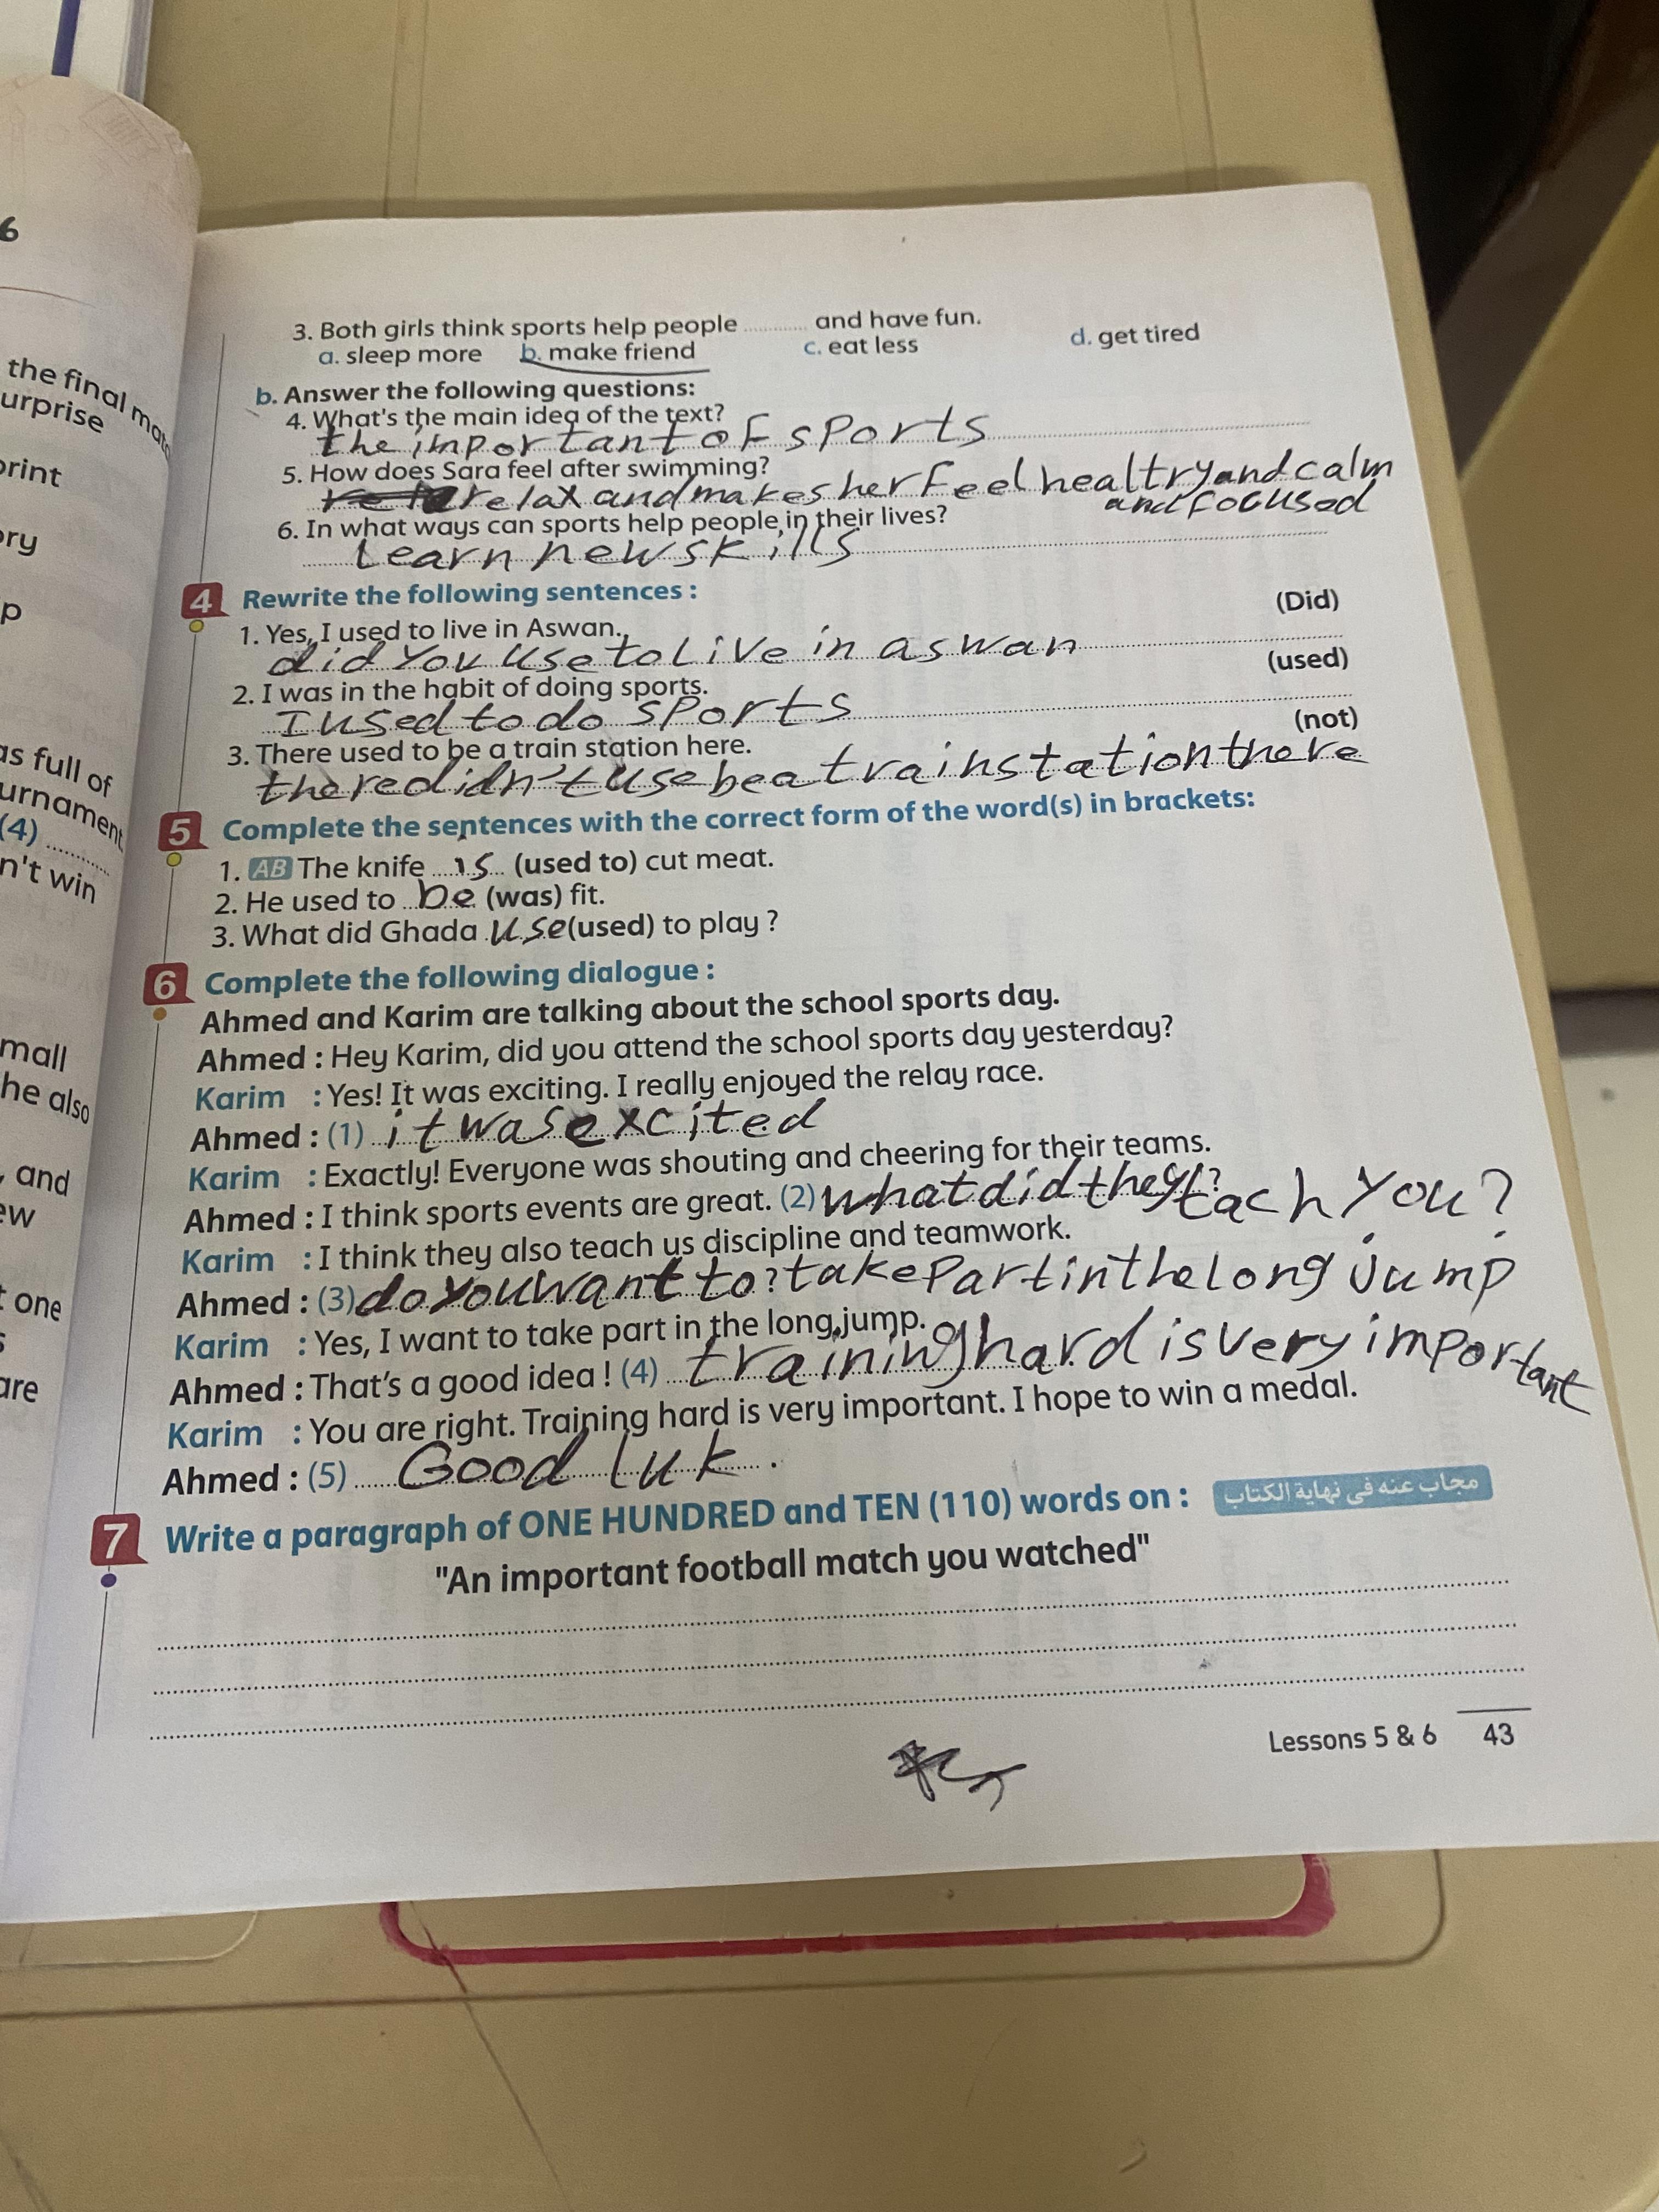 6
the final mat
urprise
print
ory
p
as full of
urnament
(4) ..........
n't win
mall
he also
, and
ew
t one
s
are
3. Both girls think sports help people ............ and have fun.
a. sleep more b. make friend c. eat less d. get tired
b. Answer the following questions:
4. What's the main idea of the text?
the important of sports
5. How does Sara feel after swimming?
relax and makes her Feel healtry and calm
and focused
6. In what ways can sports help people in their lives?
Learn new skills
4 Rewrite the following sentences :
1. Yes, I used to live in Aswan. (Did)
did You use to Live in aswan
2. I was in the habit of doing sports. (used)
I used to do sports
3. There used to be a train station here. (not)
there didn't use be a train station there
5 Complete the sentences with the correct form of the word(s) in brackets:
1. AB The knife ....is... (used to) cut meat.
2. He used to ..be. (was) fit.
3. What did Ghada .use (used) to play ?
6 Complete the following dialogue :
Ahmed and Karim are talking about the school sports day.
Ahmed : Hey Karim, did you attend the school sports day yesterday?
Karim : Yes! It was exciting. I really enjoyed the relay race.
Ahmed : (1) it was excited
Karim : Exactly! Everyone was shouting and cheering for their teams.
Ahmed : I think sports events are great. (2) what did they ? tach You?
Karim : I think they also teach us discipline and teamwork.
Ahmed : (3) do you want to? take Part in the long jump
Karim : Yes, I want to take part in the long jump.
Ahmed : That's a good idea ! (4) training hard is very important
Karim : You are right. Training hard is very important. I hope to win a medal.
Ahmed : (5) Good luk .
7 Write a paragraph of ONE HUNDRED and TEN (110) words on : مجاب عنه فى نهاية الكتاب
"An important football match you watched"
Lessons 5 & 6 43